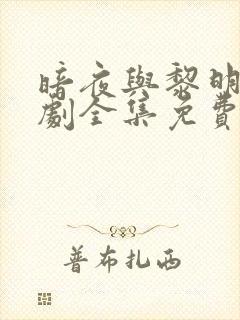 暗夜與黎明
劇全集免費
普布扎西